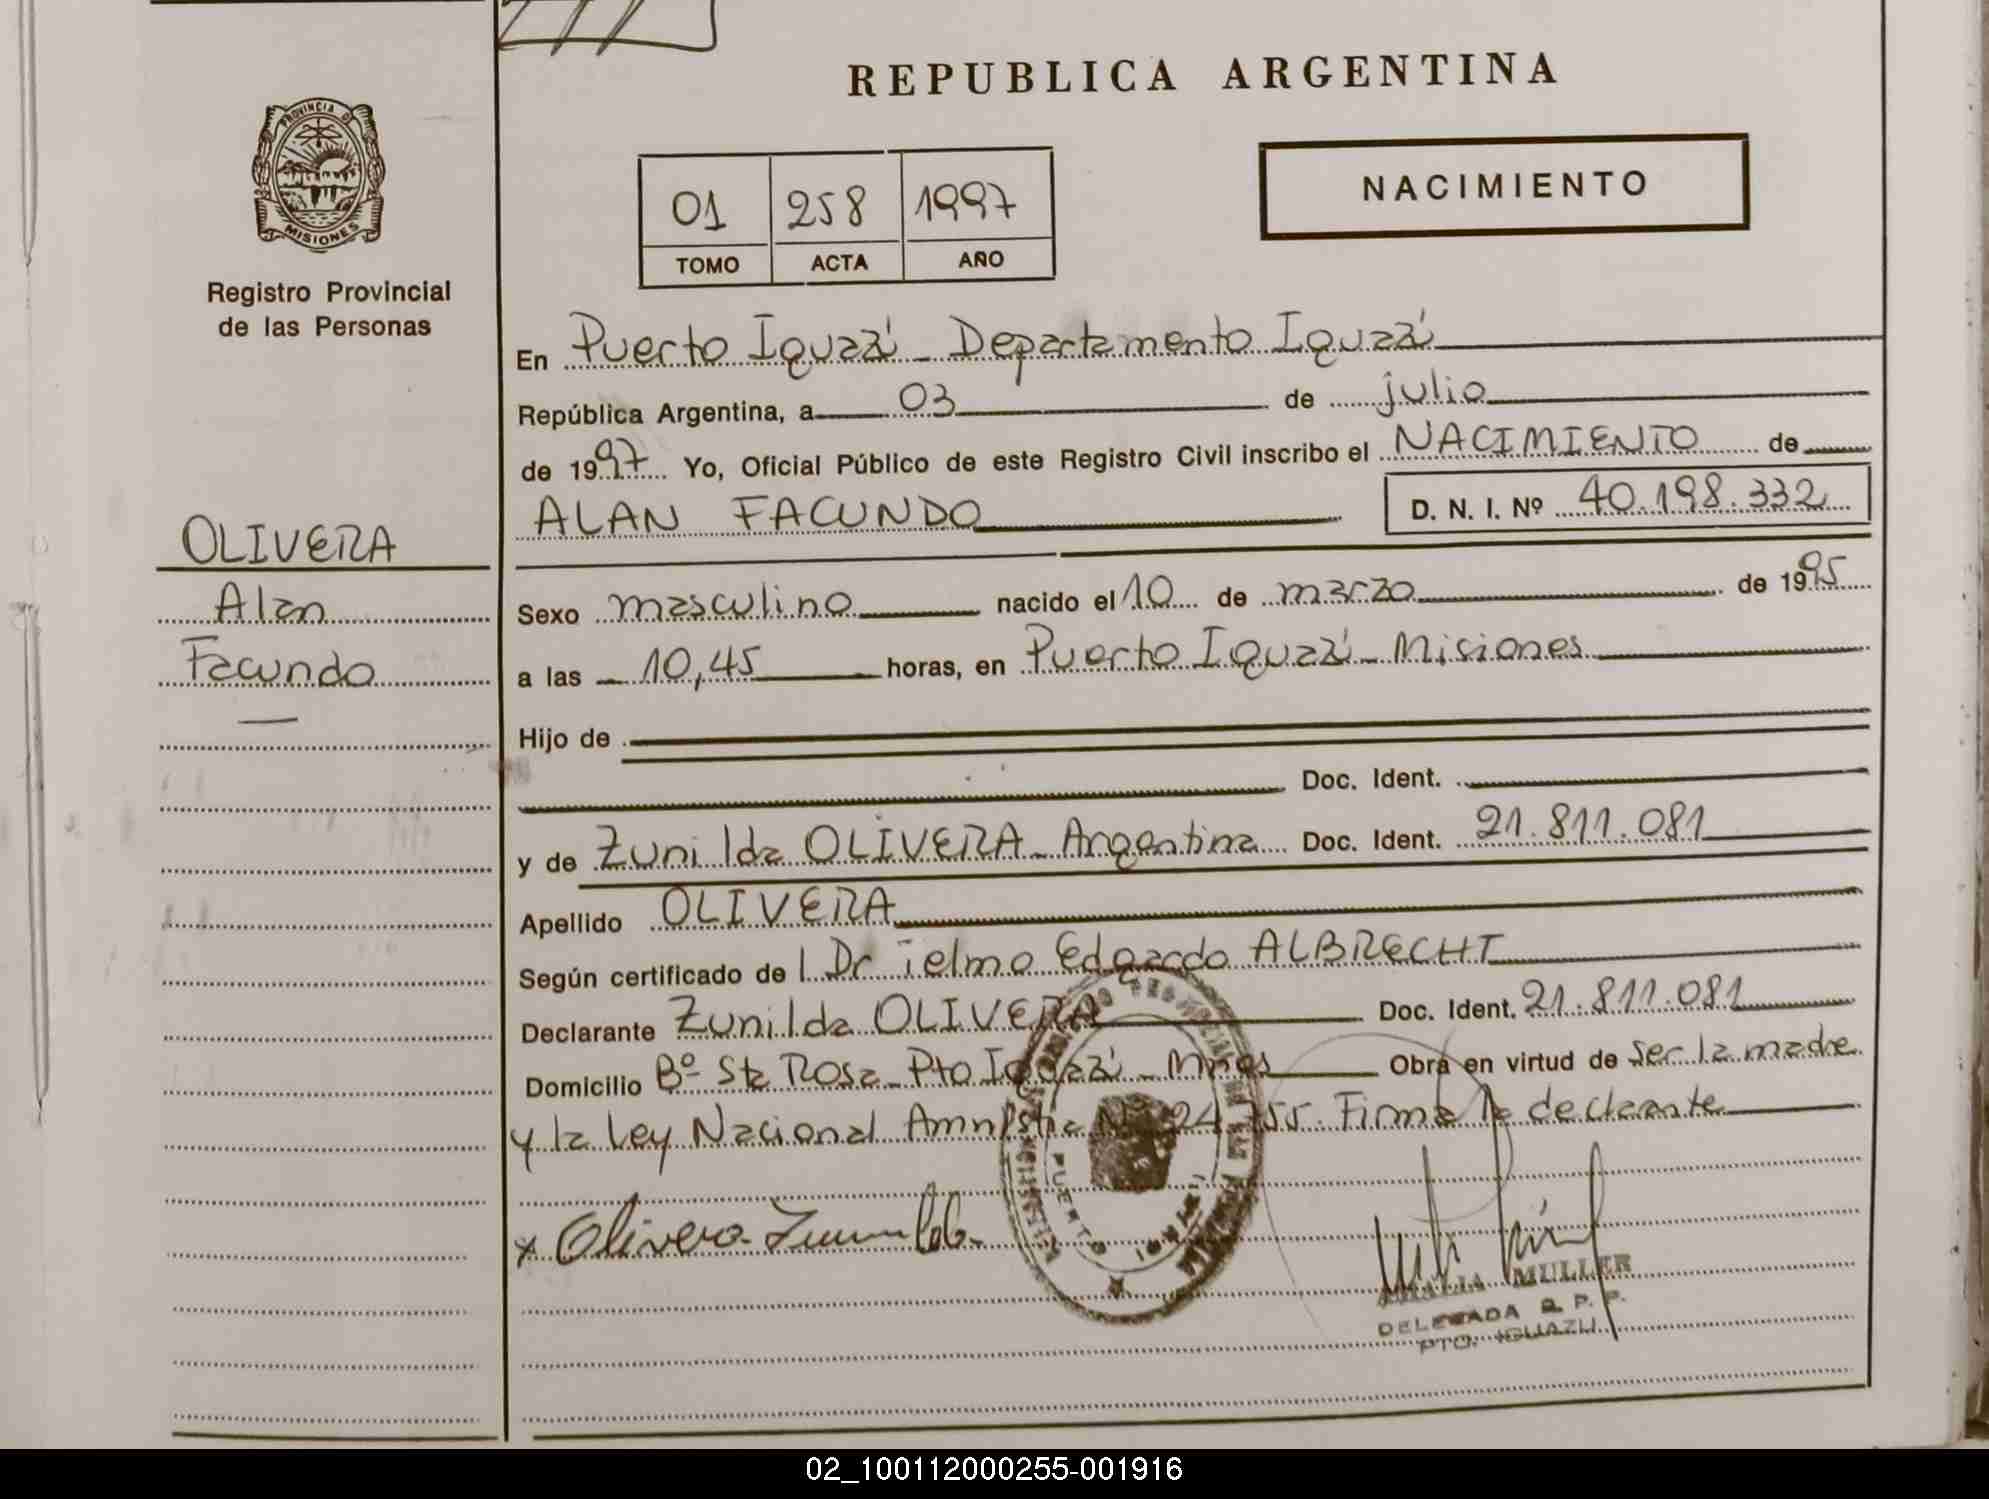 REPUBLICA ARGENTINA
PROVINCIA D
MISIONES
Registro Provincial
de las Personas
01 258 1997
TOMO ACTA AÑO
NACIMIENTO
En Puerto Iguazú - Departamento Iguazú
República Argentina, a 03 de julio
de 1997 Yo, Oficial Público de este Registro Civil inscribo el NACIMIENTO de
ALAN FACUNDO D. N. I. Nº 40.198.332
OLIVERA
Alan
Facundo
Sexo masculino nacido el 10 de marzo de 1995
a las 10,45 horas, en Puerto Iguazú - Misiones
Hijo de
Doc. Ident.
y de Zunilda OLIVERA - Argentina Doc. Ident. 21.811.081
Apellido OLIVERA
Según certificado del Dr Telmo Edgardo ALBRECHT
Declarante Zunilda OLIVERA Doc. Ident. 21.811.081
Domicilio Bº Sta Rosa - Pto Iguazú - Mnes Obra en virtud de ser la madre
y la Ley Nacional Amnistia Nº 24.755. Firma la declarante
x Olivera Zunilda
PUERTO
MULLER
DELEGADA R. P. P.
PTO. IGUAZU
02_100112000255-001916